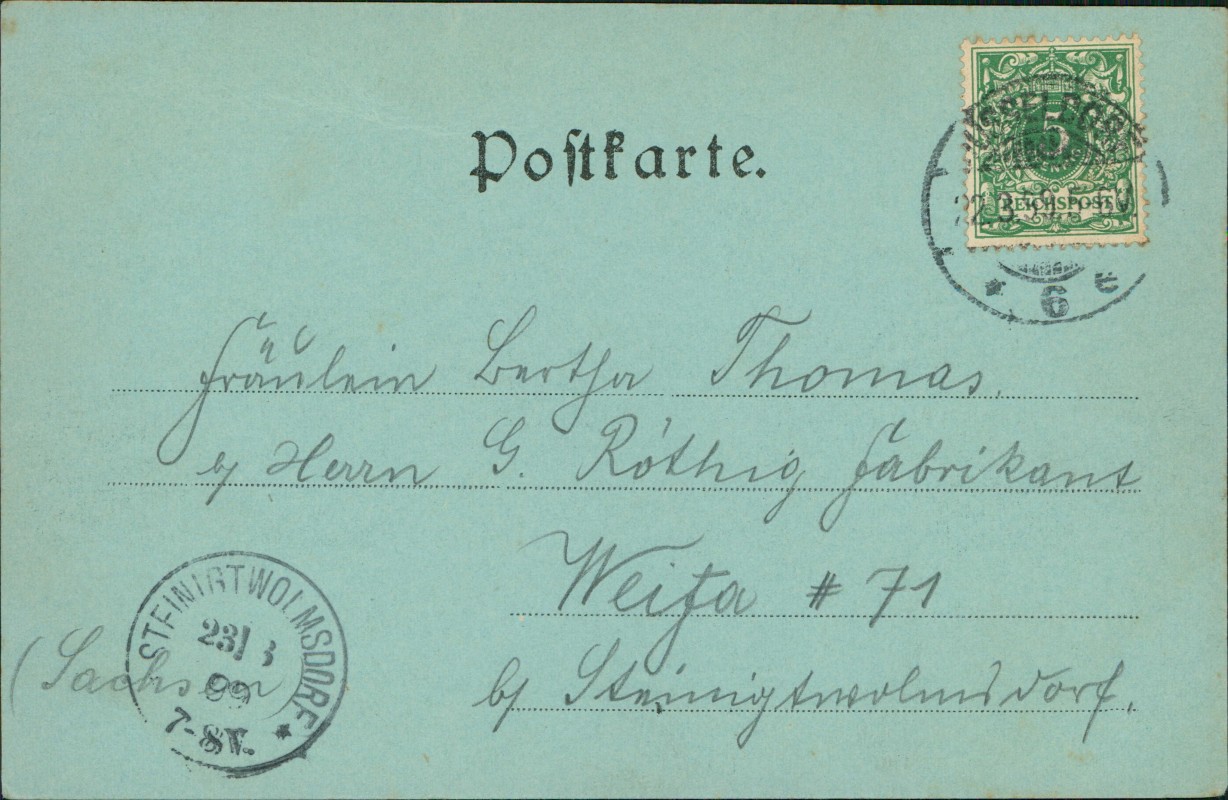 Postkarte.
5
REICHSPOST
22.3.
6
Fräulein Bertha Thomas.
b/ Herrn G. Röthig Fabrikant
Weifa # 71
b/ Steinigtwolmsdorf.
(Sachsen
STEINIGTWOLMSDORF
23/3
99
7-8V.